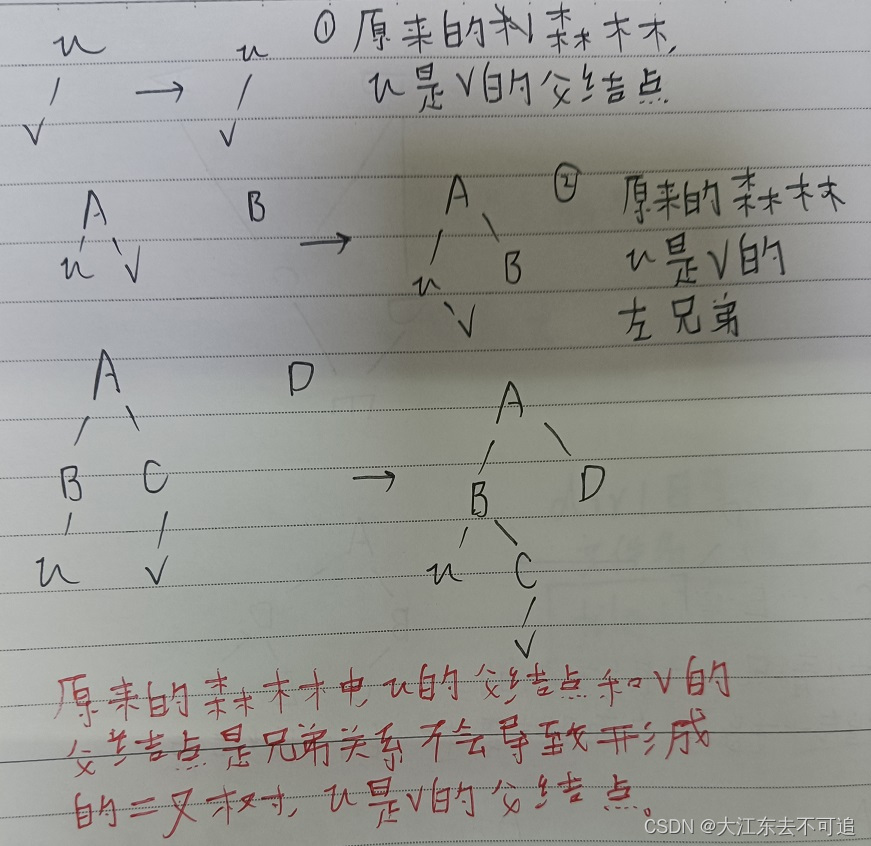 u u ① 原来的森林,
V V u是V的父结点
A B A ② 原来的森林
u V u B u是V的
V 左兄弟
A D A
B C B D
u V u C
V
原来的森林中,u的父结点和V的
父结点是兄弟关系不会导致形成
的二叉树,u是V的父结点。
CSDN @大江东去不可追